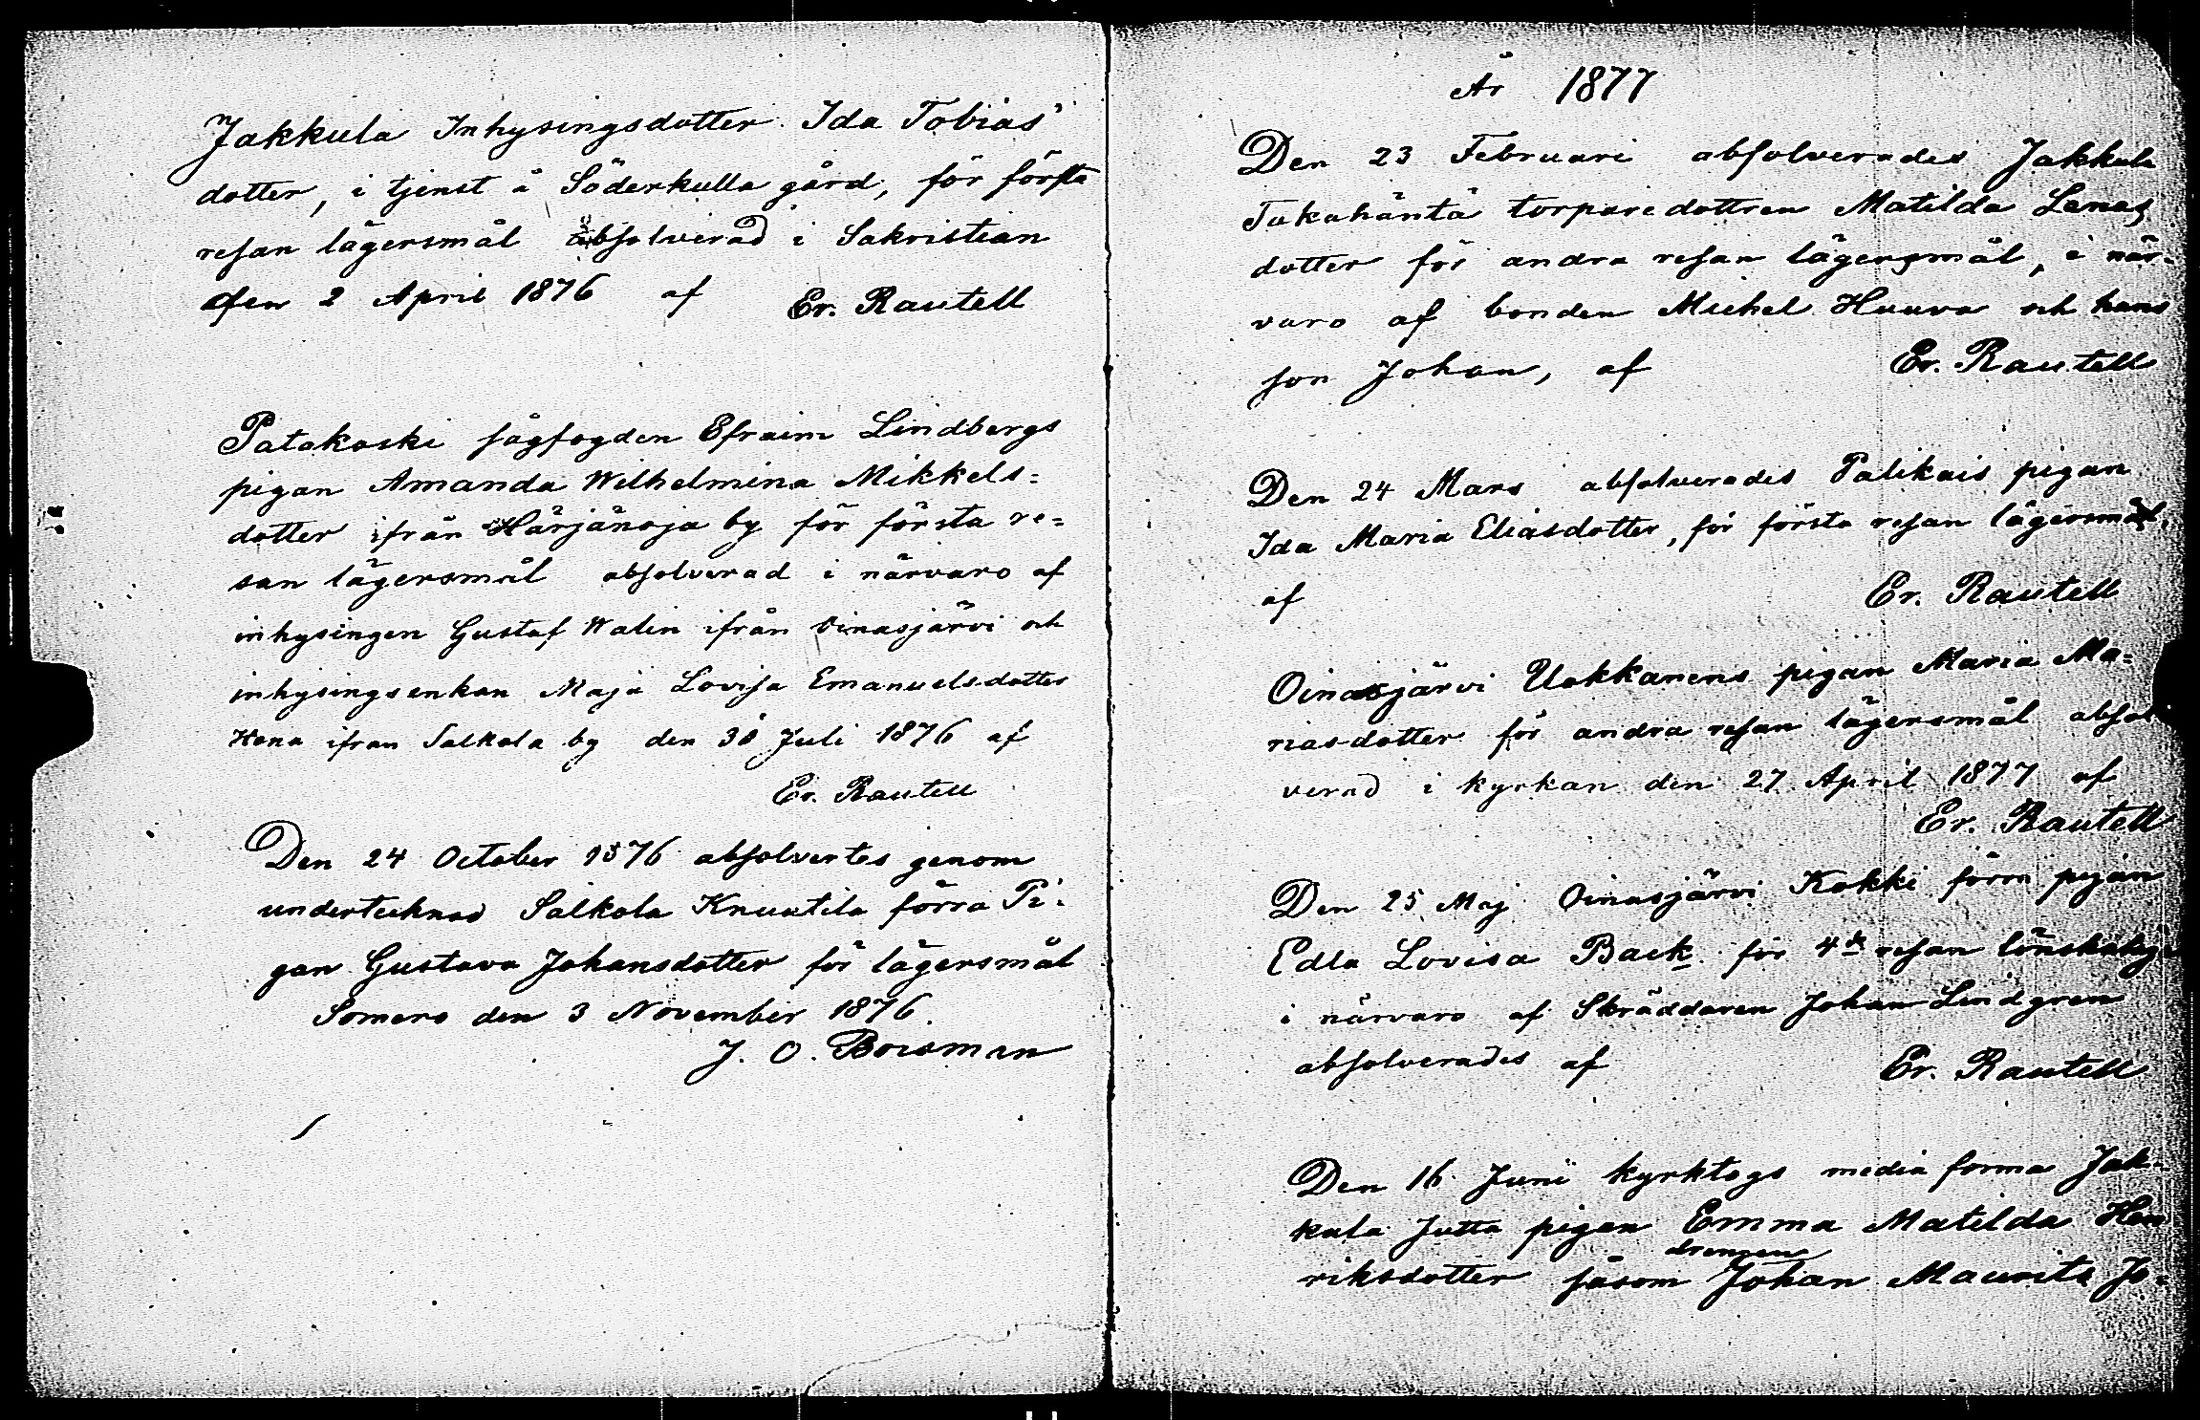 Jakkula Inhysingsdotter Ida Tobias'
dotter, i tjenst å Söderkulla gård, för första
resan lägersmål absolverad i Sakristian
den 2 April 1876 af Er. Rautell
Patakoski sågfogden Efraim Lindbergs
pigan Amanda Wilhelmina Mikkels=
dotter ifrån Härjänoja by för första re=
san lägersmål absolverad i närvaro af
inhysingen Gustaf Walin ifrån Oinasjärvi och
inhysingsenkan Maja Lovisa Emanuelsdotter
ifrån Salkola by den 30 Juli 1876 af
Er. Rautell
Den 24 October 1876 absolvertes genom
undertecknad Salkola Knuutila förra Pi=
gan Gustava Johansdotter för lägersmål
Somero den 3 November 1876.
J. O. Boisman
År 1877
Den 23 Februari absolverades Jakkula
Takahäntä torparedottren Matilda
dotter för andra resan lägersmål, i när=
varo af bonden Mickel Huuva och hans
son Johan, af Er. Rautell
Den 24 Mars absolverades Palikais pigan
Ida Maria Eliasdotter, för första resan lägersmål,
af Er. Rautell
Oinasjärvi Uokkanens pigan Maria Ma=
riasdotter för andra resan lägersmål absol
verad i kyrkan den 27 April 1877 af
Er. Rautell
Den 25 Maj Oinasjärvi Kokki förra pigan
Edla Lovisa Back för 4de resan
i närvaro af Skräddaren Johan Lindgren
absolverades af Er. Rautell
Den 16 Juni kyrktogs media forma Jak=
kula Jutta pigan Emma Matilda Hen
riksdotter såsom drengen Johan Maurits Jo=